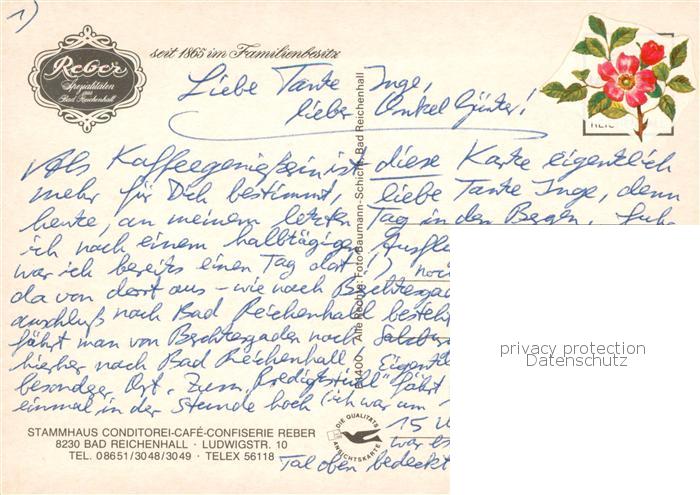 1)
seit 1865 im Familienbesitz
Reber
Spezialitäten
aus
Bad Reichenhall
Liebe Tante Inge,
lieber Onkel Günter!
Als Kaffeegenießerin ist diese Karte eigentlich
mehr für Dich bestimmt, liebe Tante Inge, denn
heute, an meinem letzten Tag in den Bergen, fuhr
ich nach einem halbtägigen Ausflu
war ich bereits einen Tag dort!) noc
da von dort aus – wie nach Berchtesgad
anschluß nach Bad Reichenhall besteht
fährt man von Berchtesgaden nach Salzbur
hierher nach Bad Reichenhall. Eigentli
besonder Ort. Zum "Predigtstuhl" fährt
einmal in der Stunde hoch (ich war um
15 U
war es
Tal oben bedeckt
STAMMHAUS CONDITOREI-CAFÉ-CONFISERIE REBER
8230 BAD REICHENHALL · LUDWIGSTR. 10
TEL. 08651/3048/3049 · TELEX 56118
DIE QUALITÄTS
ANSICHTSKARTE
Alle Rechte: Foto Baumann-Schicht, Bad Reichenhall
privacy protection
Datenschutz